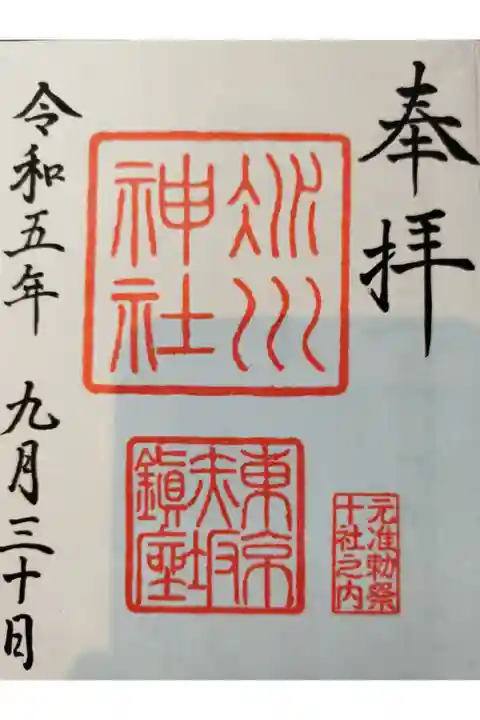 奉拝
氷川
神社
東京
赤坂
鎮座
元准勅祭
十社之内
令和五年 九月三十日